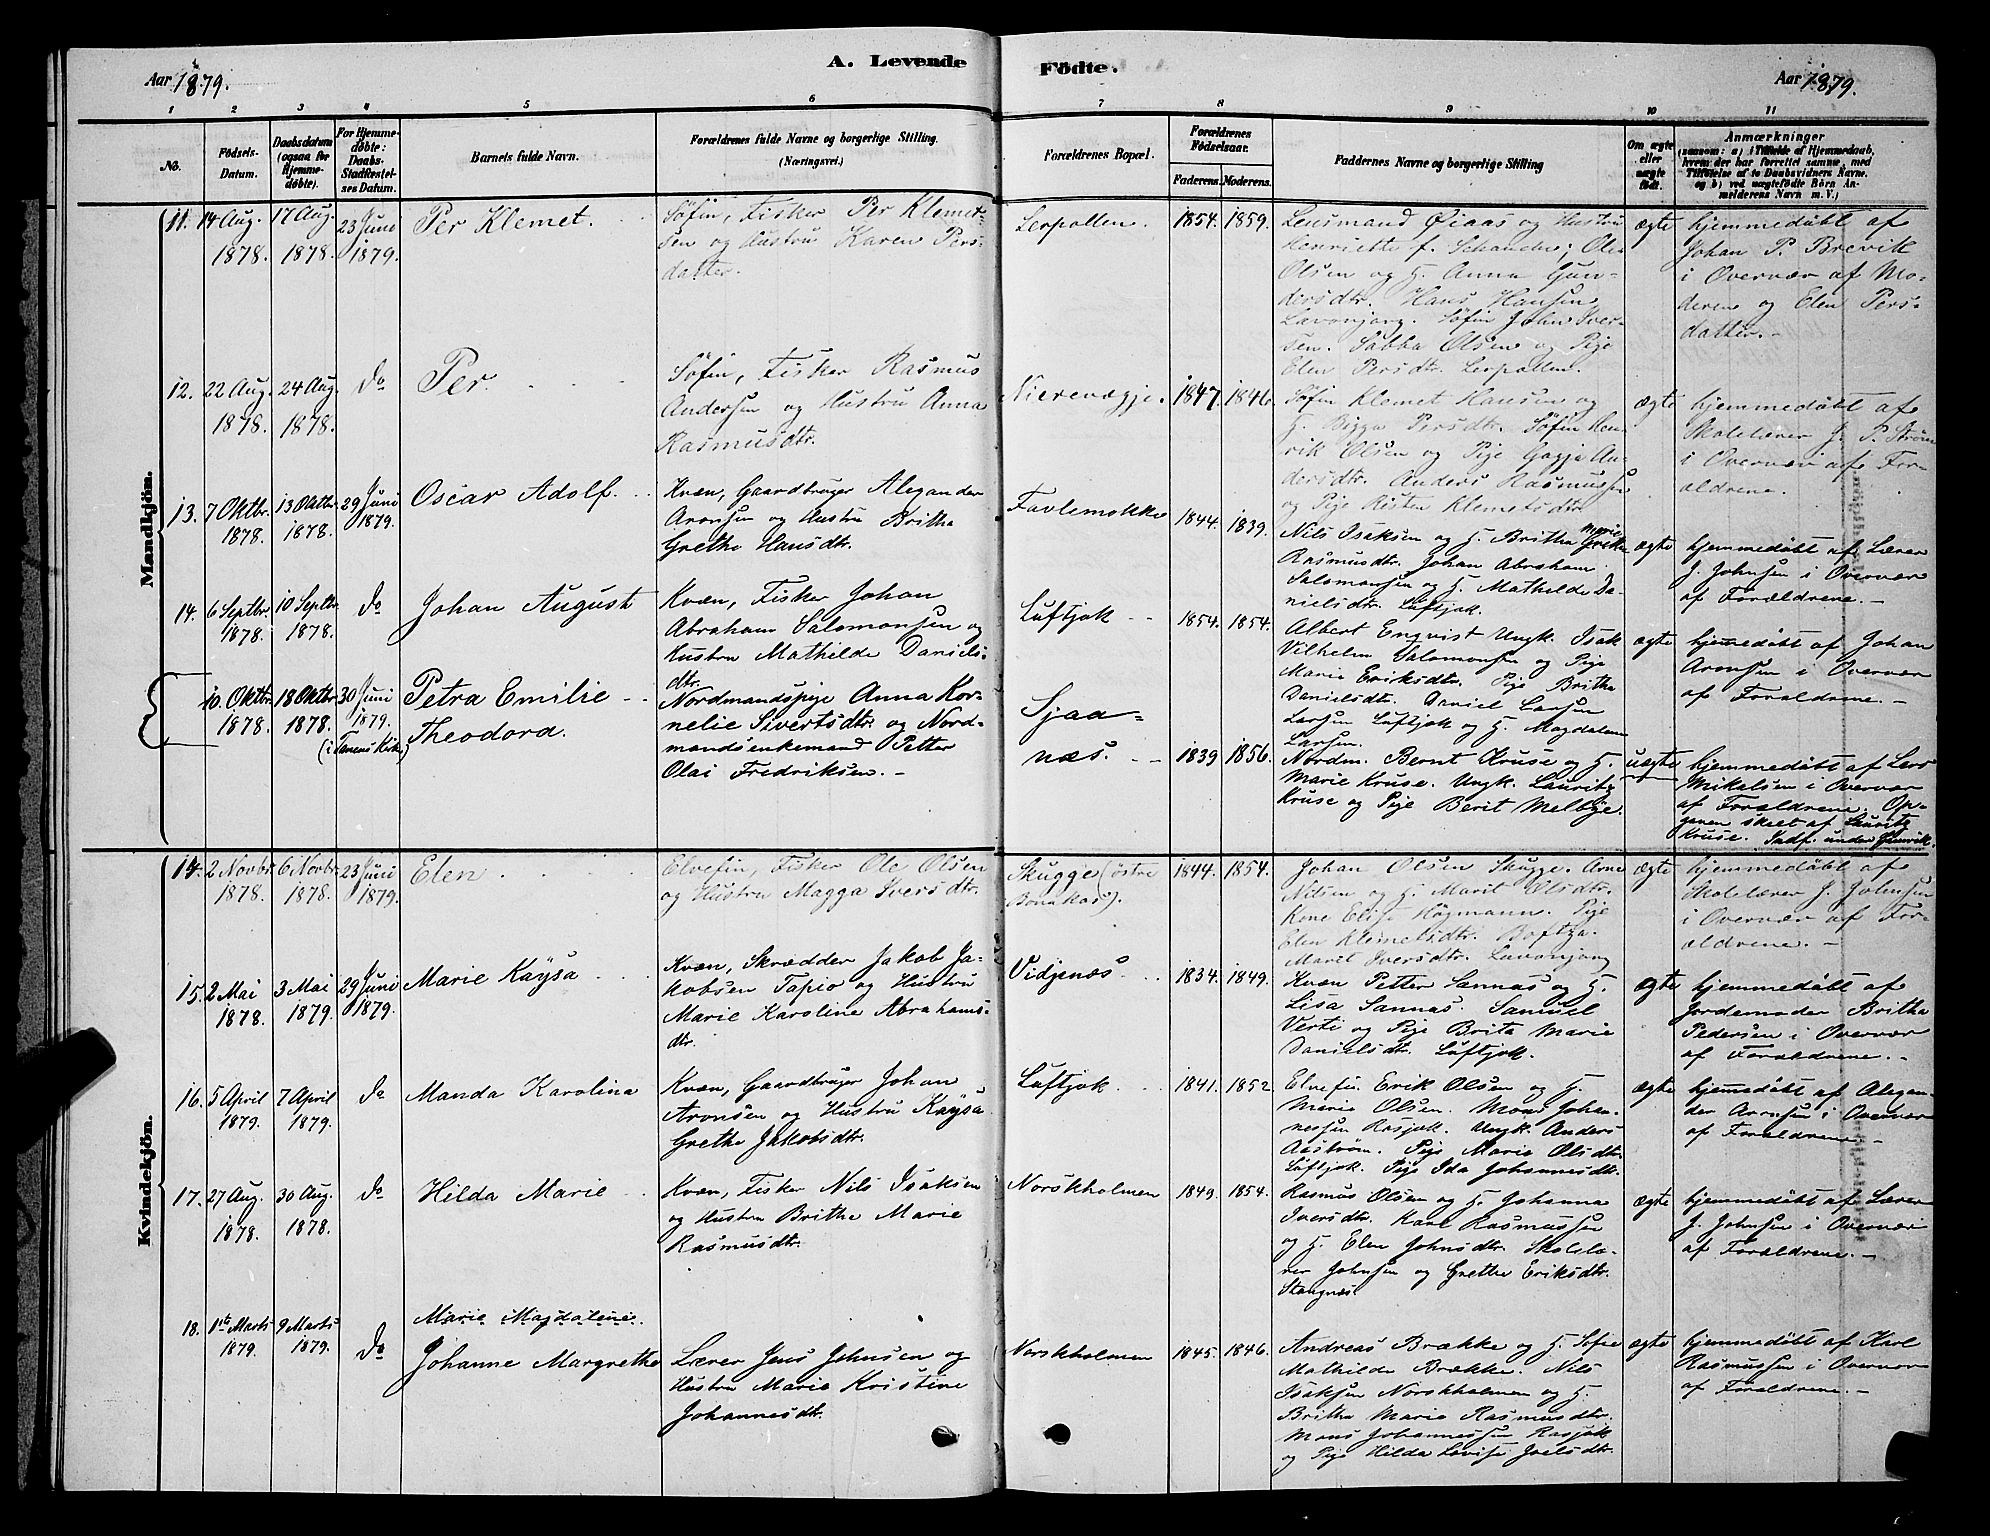 A. Levende Fødte.
Aar 1879.
Aar 1879.
1 2 3 4 5 6 7 8 9 10 11
No.
Fødsels-
Datum.
Daabsdatum
(ogsaa for
Hjemme-
døbte).
For Hjemme-
døbte:
Daabs-
Stadfæstel-
ses Datum.
Barnets fulde Navn.
Forældrenes fulde Navne og borgerlige Stilling.
(Næringsvei.)
Forældrenes Bopæl.
Forældrenes
Fødselsaar.
Faderens. Moderens.
Faddernes Navne og borgerlige Stilling
Om ægte
eller
uægte
født.
Anmærkninger
(saasom: a) i Tilfælde af Hjemmedaab,
hvem der har forrettet samme, med
Tilføielse af to Daabsvidners Navne.
og b) ved uægtefødte Børn An-
melderens Navn m. V.)
Mandkjön.
11. 14 Aug.
1878.
17 Aug.
1878.
23 Juni
1879.
Per Klemet.
Söfin, Fisker Per Klemet-
sen og Hustru Karen Pers-
datter.
Lerpollen.
1854. 1859.
Lensmand Øiaas og Hustru
Henriette f. Schancke; Ole
Olsen og H. Anna Gun-
dersdtr. Hans Hansen
Lavonjarg. Söfin John Iver-
sen. Sabba Olsen og Pige
Elen Persdtr. Lerpollen.
ægte
hjemmedøbt af
Johan P. Brevik
i Overvær af Mo-
deren og Elen Pers-
datter.-
12. 22 Aug.
1878.
24 Aug.
1878.
do
Per.
Söfin, Fisker Rasmus
Andersen og Hustru Anna
Rasmusdtr.
Nierevægje.
1847. 1846.
Söfin Klemet Hansen og
H. Bigga Persdtr. Söfin Hen-
rik Olsen og Pige Gagja An-
dersdtr. Anders Rasmussen
og Pige Risten Klemetsdtr
ægte
hjemmedøbt af
Skolelærer J. P. Strøm
i Overvær af For-
ældrene.
13. 7 Oktbr.
1878.
13 Oktbr.
1878.
29 Juni
1879.
Oscar Adolf.
Kvæn, Gaardbruger Alexander
Aronsen og Hustru Britha
Grethe Hansdtr.
Favlemokke
1844. 1839.
Nils Isaksen og H. Britha Marie
Rasmusdtr. Johan Abraham
Salomonsen og H. Mathilde Da-
nielsdtr. Luftjok.
ægte
hjemmedøbt af Lærer
J. Johnsen i Overvær
af Forældrene.-
14. 6 Septbr.
1878.
10 Septbr.
1878.
do
Johan August
Kvæn, Fisker Johan
Abraham Salomonsen og
Hustru Mathilde Daniels-
dtr.
Luftjok
1854. 1854.
Albert Enqvist Ungk. Isak
Vilhelm Salomonsen og Pige
Marie Eriksdtr. Pige Britha
Danielsdtr. Daniel Larsen
Larsen Luftjok og H. Magdalene
Larsen.
ægte
hjemmedøbt af Johan
Aronsen i Overvær
af Forældrene.-
10. Oktbr.
1878.
18 Oktbr.
1878.
30 Juni
1879.
(i Tanens Kirke)
Petra Emilie
Theodora.
Nordmandspige Anna Kor-
nelie Sivertsdtr. og Nord-
mandsenkemand Petter
Olai Fredriksen.-
Sjaa-
næs.
1839 1856.
Nordm. Bernt Kruse og H.
Marie Kruse. Ungk. Lauritz
Kruse og Pige Berit Melbye.
uægte
hjemmedøbt af Lars
Mikalsen i Overvær
af Forældrene. Op-
gaven skeet af Lauritz
Kruse. Indf. under
Kvindekjön.
14. 2 Novbr.
1878.
6 Novbr.
1878.
23 Juni
1879.
Elen
Elvefin, Fisker Ole Olsen
og Hustru Magga Iversdtr.
Skugge (östre
Bonakas).
1844. 1854.
Johan Olsen Skugge. Arne
Nilsen og H. Marit Olsdtr.
Kone Elise Högmann. Pige
Elen Klemetsdtr. Boftza.
Marit Iversdtr. Lavonjarg
ægte
hjemmedøbt af
Skolelærer J. Johnsen
i Overvær af For-
ældrene.-
15. 2 Mai
1878.
3 Mai
1879.
29 Juni
1879.
Marie Kaysa
Kvæn, Skrædder Jakob Ja-
kobsen Tapio og Hustru
Marie Karoline Abrahams-
dtr.
Vidjenæs
1834. 1849.
Kvæn Petter Sannas og H.
Lisa Sannas. Samuel
Verti og Pige Brita Marie
Danielsdtr. Luftjok.
ægte
hjemmedøbt af
Jordemoder Britha
Pedersen i Overvær
af Forældrene.-
16. 5 April
1879.
7 April
1879.
do
Manda Karolina
Kvæn, Gaardbruger Johan
Aronsen og Hustru Kaysa
Grethe Jakobsdtr.
Luftjok
1841. 1852
Elvefin Erik Olsen og H.
Marie Olsen. Mons Johan-
nessen Rasjok. Ungk. Anders
Aaström. Pige Marie Olsdtr.
Luftjok. Pige Ida Johannesdtr.
ægte
hjemmedøbt af Alexan-
der Aronsen i Overvær
af Forældrene.-
17. 27 Aug.
1878.
30 Aug.
1878.
do
Hilda Marie
Kvæn, Fisker Nils Isaksen
og Hustru Britha Marie
Rasmusdtr.
Norskholmen
1849. 1854.
Rasmus Olsen og H. Johanna
Iversdtr. Karl Rasmussen
og H. Elen Johnsdtr. Skolelæ-
rer Johnsen og Grethe Eriksdtr.
Stangnes
ægte
hjemmedøbt af Lærer
J. Johnsen i Overvær
af Forældrene.-
18. 1ste Marts
1879.
9 Marts
1879.
do
Marie Magdalene.
Johanne Margrethe
Lærer Jens Johnsen og
Hustru Marie Kristine
Johannesdtr.
Norskholmen
1845. 1846.
Andreas Brække og H. Sofie
Mathilde Brække. Nils
Isaksen Norskholmen og H.
Britha Marie Rasmusdtr.
Mons Johannessen Rasjok
og Pige Hilda Lovise Joelsdtr.
ægte
hjemmedøbt af Karl
Rasmussen i Overvær
af Forældrene.-